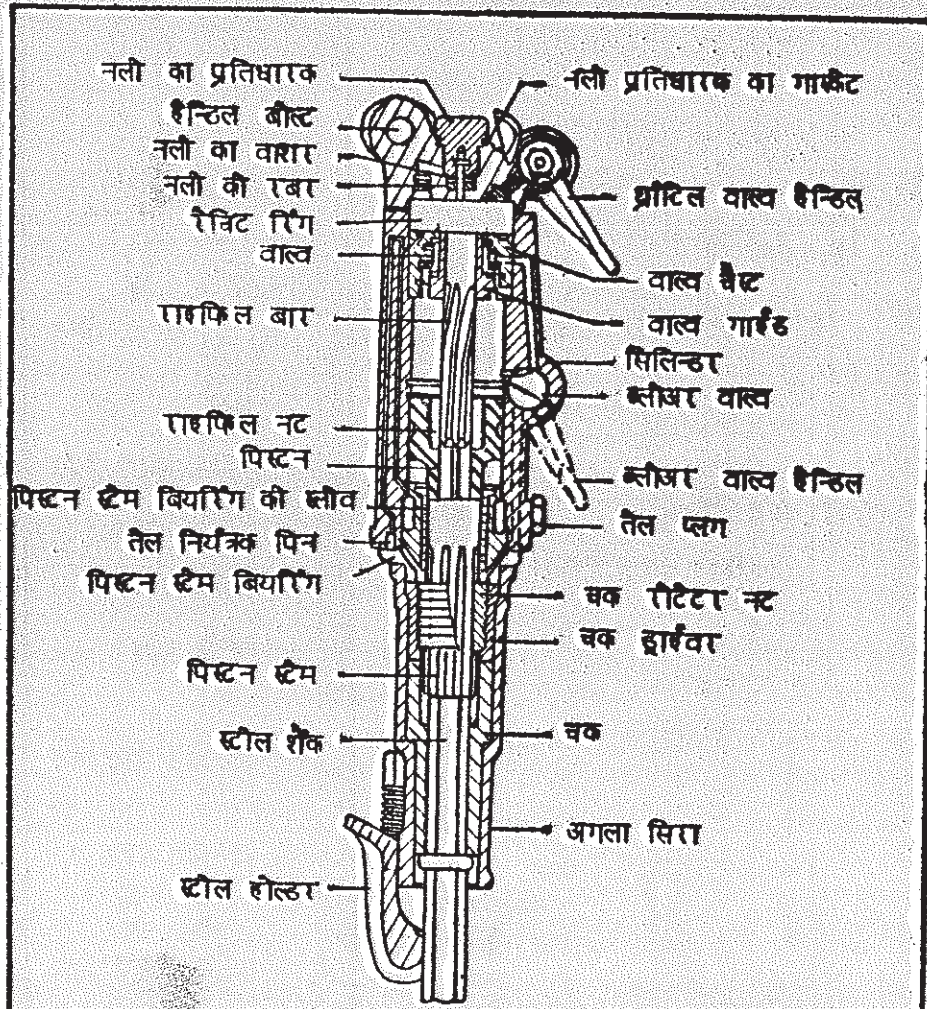 नली का प्रतिधारक
हैन्डिल बोल्ट
नली का वाशर
नली की रबर
रैचिट रिंग
वाल्व
राइफिल बार
राइफिल नट
पिस्टन
पिस्टन स्टेम बियरिंग की स्लीव
तेल नियंत्रक पिन
पिस्टन स्टेम बियरिंग
पिस्टन स्टेम
स्टील शैंक
स्टील होल्डर
नली प्रतिधारक का गास्केट
थ्रोटिल वाल्व हैन्डिल
वाल्व चैस्ट
वाल्व गाईड
सिलिन्डर
ब्लोअर वाल्व
ब्लोअर वाल्व हैन्डिल
तेल प्लग
चक रोटेटर नट
चक ड्राईवर
चक
अगला सिरा